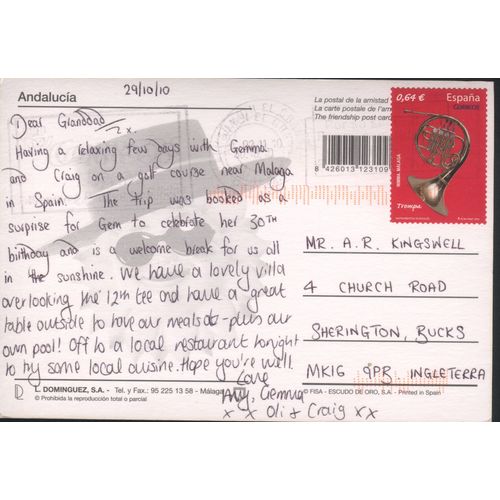 Andalucía
29/10/10
La postal de la amistad
La carte postale de l'am
The friendship post card
8 426013 123109
0,64 €
España
CORREOS
Trompa
Dear Granddad,
2x.
Having a relaxing few days with Gemma
and Craig on a golf course near Malaga
in Spain. The trip was booked as a
surprise for Gem to celebrate her 30TH
birthday and is a welcome break for us all
in the sunshine. We have a lovely villa
overlooking the 12th tee and have a great
table outside to have our meals - plus our
own pool! Off to a local restaurant tonight
to try some local cuisine. Hope you're well.
Love
Amy, Gemma
x x Oli + Craig x x
MR. A.R. KINGSWELL
4 CHURCH ROAD
SHERINGTON, BUCKS
MK16 9PR, INGLETERRA
L. DOMINGUEZ, S.A. - Tel. y Fax.: 95 225 13 58 - Málaga
© Prohibida la reproducción total o parcial
© FISA - ESCUDO DE ORO, S.A. - Printed in Spain